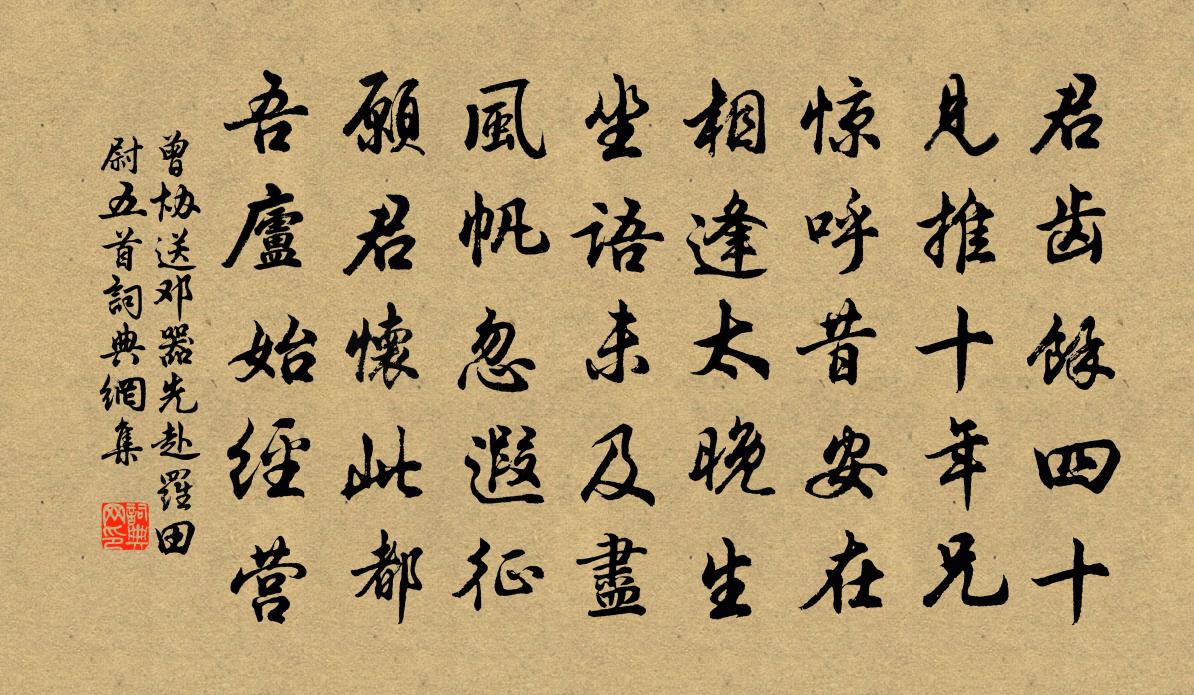 君齿餘四十
見推十年兄
惊呼昔安在
相逢太晚生
坐語未及盡
風帆忽遐征
願君懷此都
吾廬始經营
曾协送邓器先赴羅田
尉五首詞典網集
詞典
网印